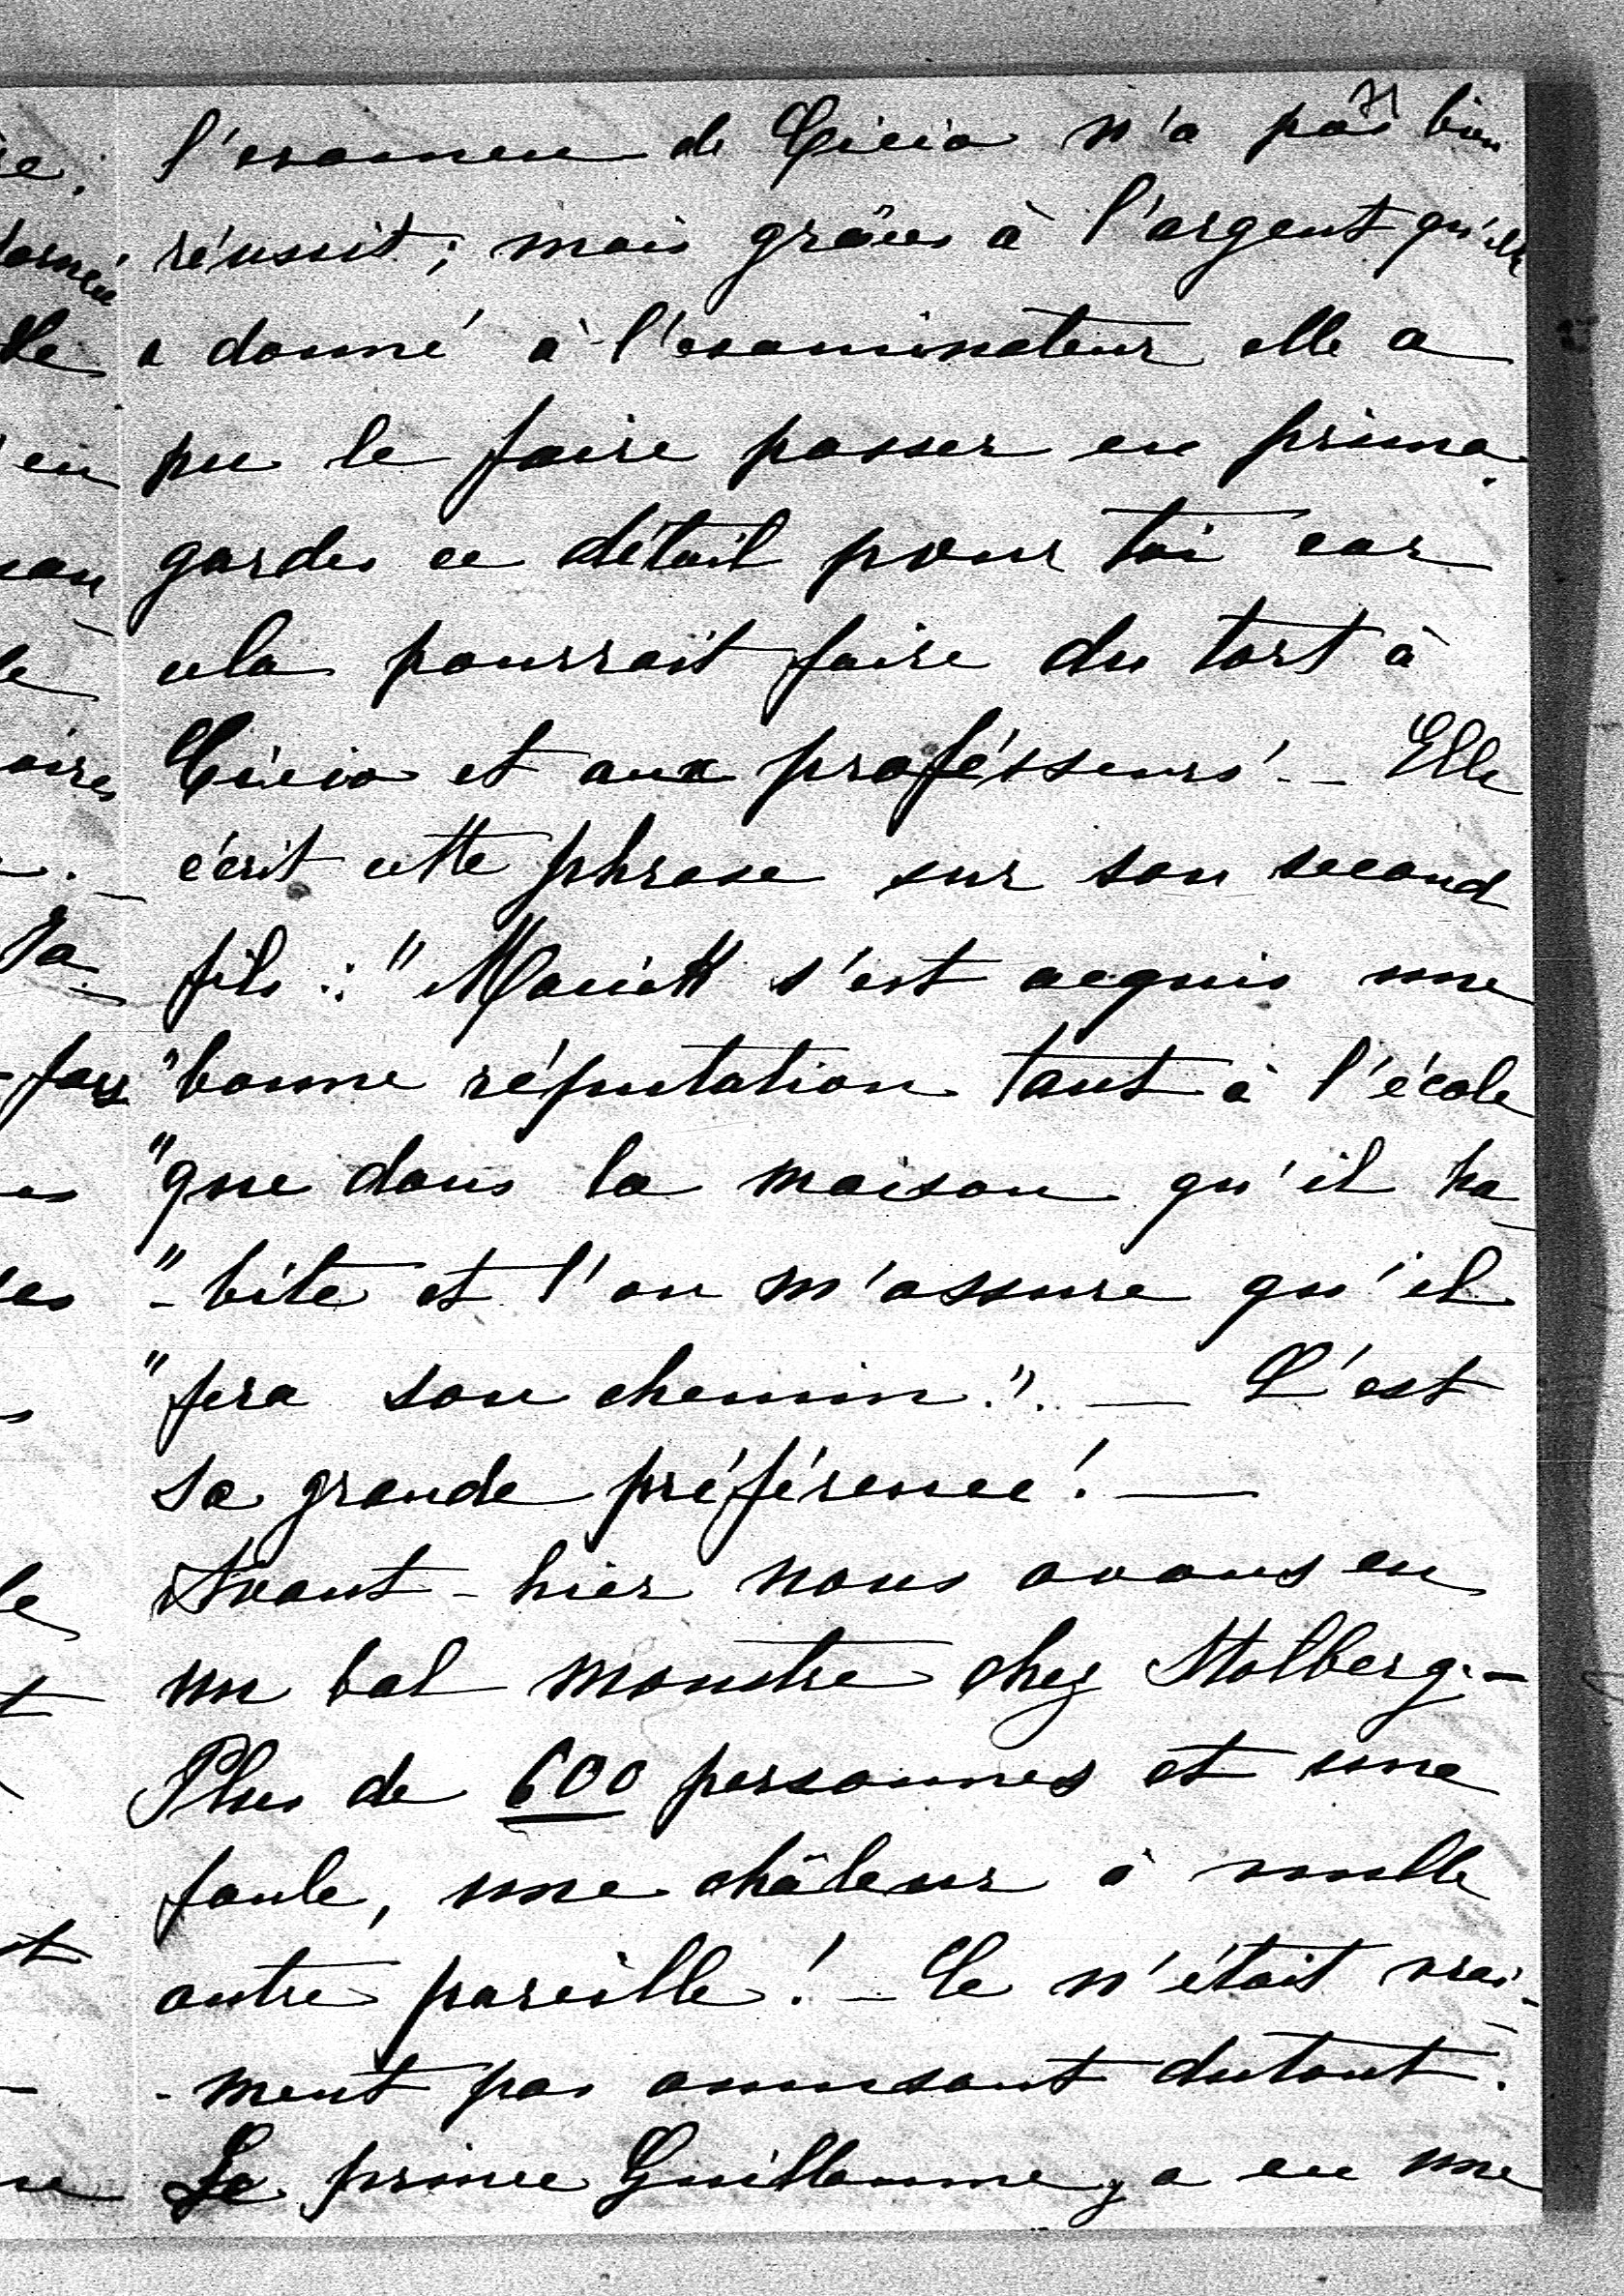 71
l'examen de Ciccio n'a pas bien
réussit; mais grâces à l'argent qu'elle
a donné à l'examinateur elle a
pu le faire passer en prima.
gardes ce détail pour toi car
cela pourrait faire du tort à
Ciccio et aux proféssseurs! _ Elle
écrit cette phrase sur son second
fils : " s'est acquis une
"bonne réputation tant à l'école
"que dans la maison qu'il ha_
"_bite et l'on m'assure qu'il
"fera son chemin.". _ C'est
sa grande préférence! _
Avant-hier nous avons eu
un bal monstre chez Stolberg. _
Plus de 600 personnes et une
foule, une châleur à nulle
autre pareille! _ Ce n'était vrai_
_ment pas amusant dutout.
Le prince Guillaume y a eu une